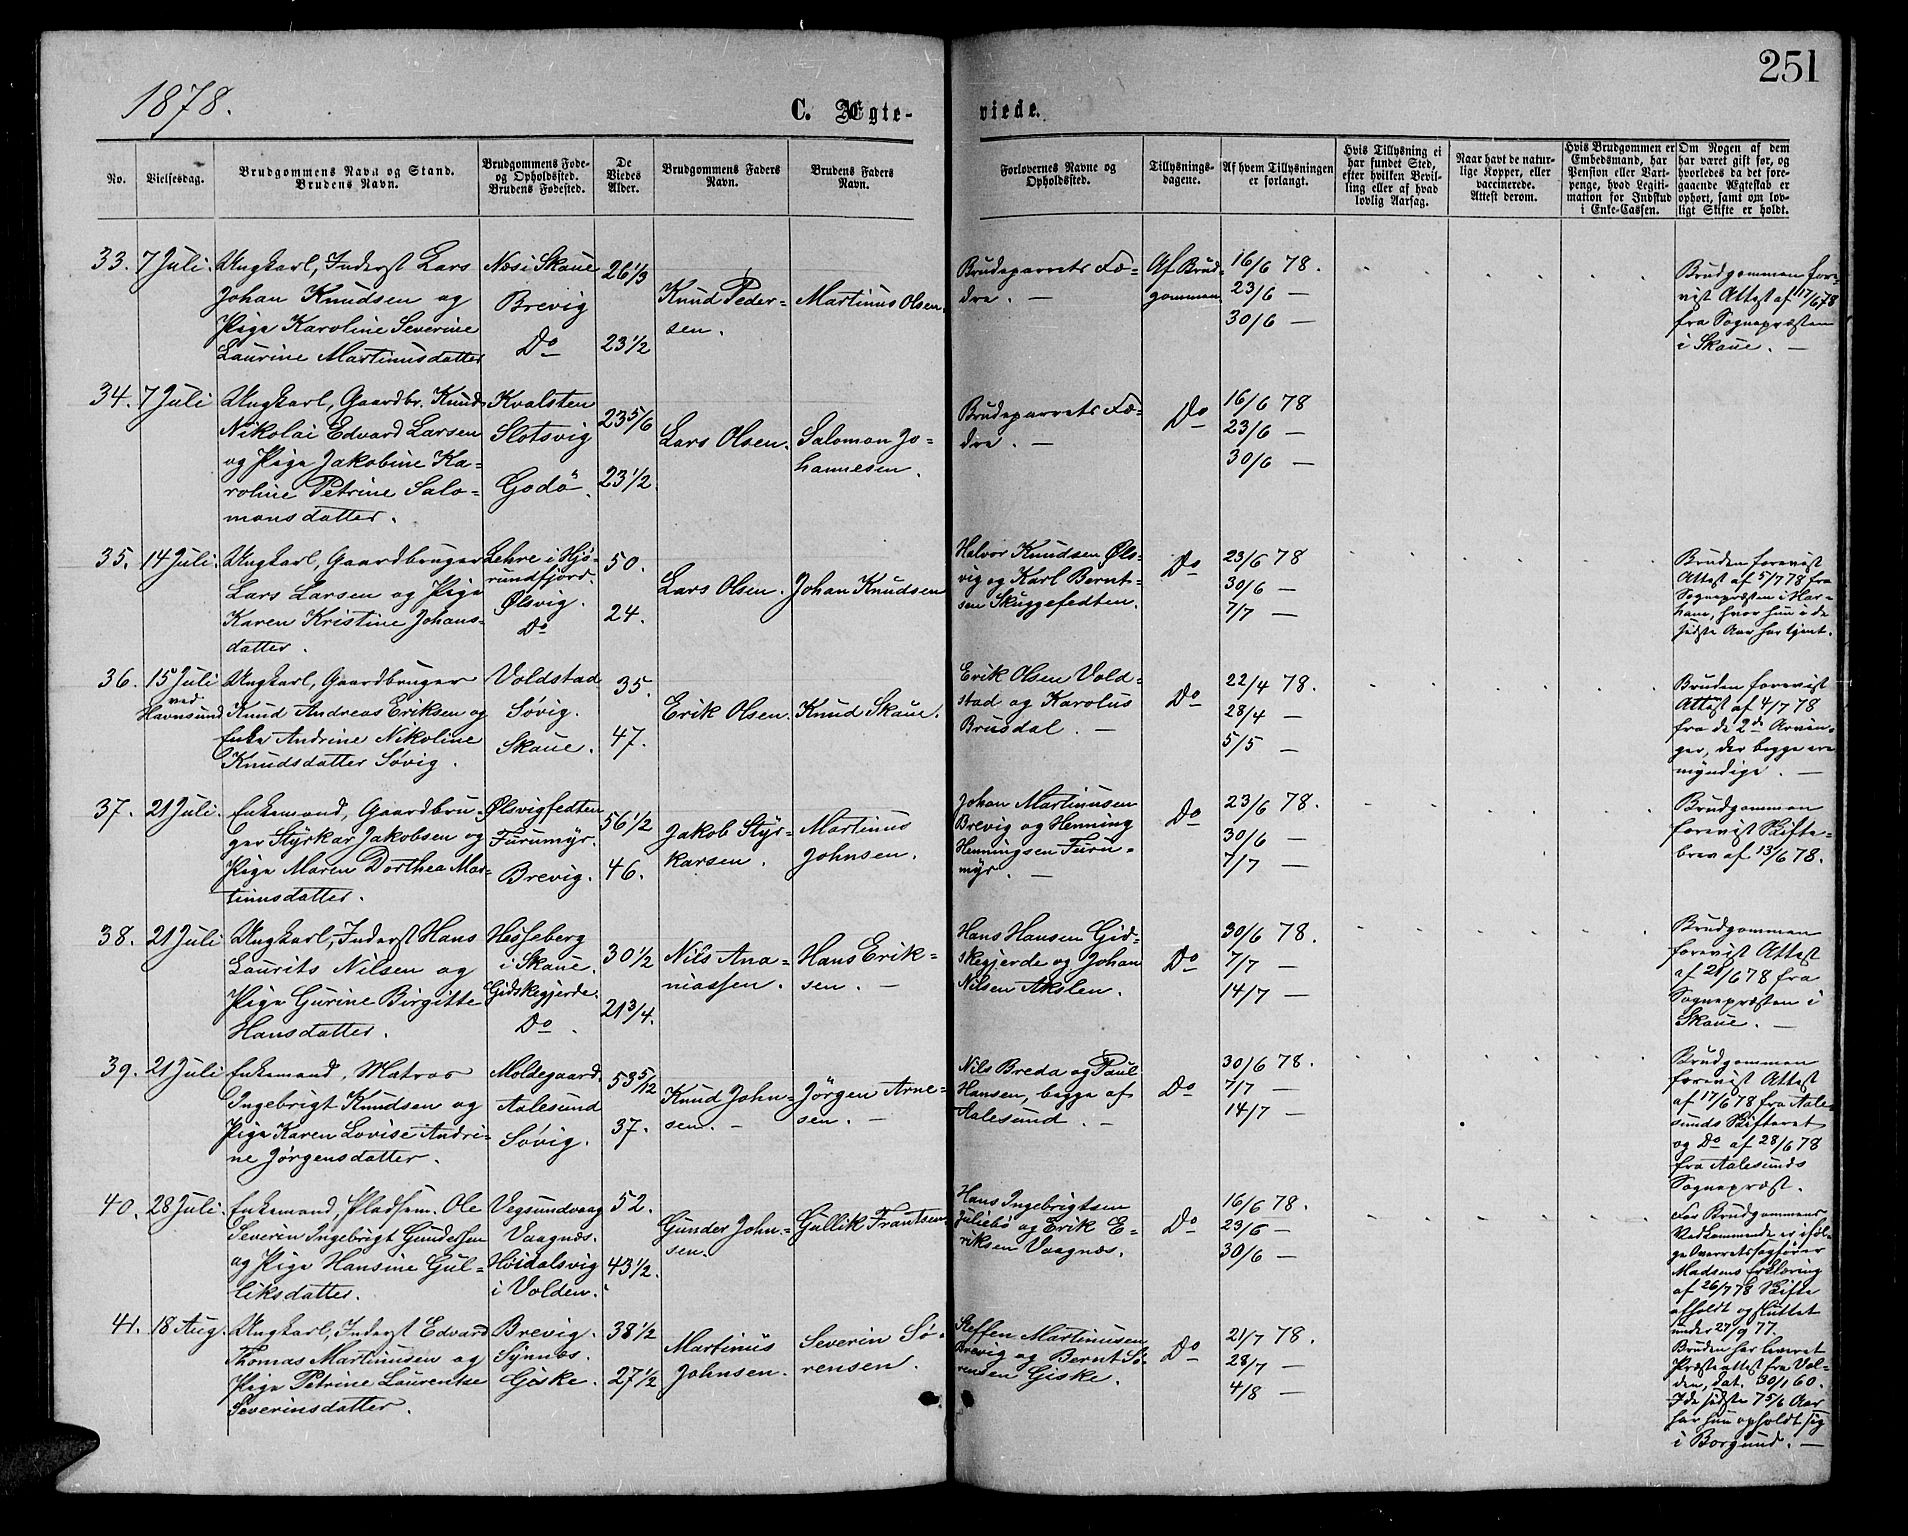 251
1878.
C. Ægte-
viede.
No.
Vielsesdag.
Brudgommens Navn og Stand.
Brudens Navn.
Brudgommens Føde-
og Opholdssted.
Brudens Fødested.
De
Viedes
Alder.
Brudgommens Faders
Navn.
Brudens Faders
Navn.
Forlovernes Navne og
Opholdssted.
Tillysnings-
dagene.
Af hvem Tillysningen
er forlangt.
Hvis Tillysning ei
har fundet Sted,
efter hvilken Bevil-
ling eller af hvad
lovlig Aarsag.
Naar havt de natur-
lige Kopper, eller
vaccinerede.
Attest derom.
Hvis Brudgommen er
Embedsmand, har
Pension eller Vart-
penge, hvad Legiti-
mation for Indskud
i Enke-Cassen.
Om Nogen af dem
har været gift før, og
hvorledes da det fore-
gaaende Ægteskab er
ophørt, samt om lov-
ligt Skifte er holdt.
33. 7 Juli.
Ungkarl, Inderst Lars
Johan Knudsen og
Pige Karoline Severine
Laurine Martinusdatter
Næs i Skaue
Brevig
Do
26 1/3
23 1/2
Knud Peder-
sen.
Martinus Olsen.
Brudeparrets Fæ-
dre. —
Af Brud-
gommen
16/6 78.
23/6 —
30/6 —
Brudgommen fore-
vist Attest af 17/6 78
fra Sognepræsten
i Skaue. —
34. 7 Juli
Ungkarl, Gaardbr. Knud
Nikolai Edvard Larsen
og Pige Jakobine Ka-
roline Petrine Salo-
monsdatter.
Kvalsten
Slotsvig
Godö.
23 5/6
23 1/2
Lars Olsen.
Salomon Jo-
hannesen.
Brudeparrets Fæ-
dre. —
Do
16/6 78
23/6 —
30/6 —
35. 14 Juli.
Ungkarl, Gaardbruger
Lars Larsen og Pige
Karen Kristine Johans-
datter.
Lehre i Hjø-
rundfjord.
Ølsvig.
Do
50.
24.
Lars Olsen.
Johan Knudsen
Halvor Knudsen Øls-
vig og Karl Bernt-
sen Skuggefedten.
Do
23/6 78
30/6 —
7/7 —
Bruden forevist
Attest af 5/7 78 fra
Sognepræsten i Har-
ham, hvor hun i de
sidste Aar har tjent.
36. 15 Juli
ved
Havnsund
Ungkarl, Gaardbruger
Knud Andreas Eriksen og
Enke Andrine Nikoline
Knudsdatter Søvig.
Voldstad
Søvig.
Skaue.
35.
47.
Erik Olsen.
Knud Skaue.
Erik Olsen Vold-
stad og Karolus
Brusdal. —
Do
22/4 78.
28/4 —
5/5 —
Bruden forevist
Attest af 4/7 78
fra de 2de Arvin-
ger, der begge ere
myndige. —
37. 21 Juli.
Enkemand, Gaardbru-
ger Styrkar Jakobsen og
Pige Maren Dorthea Mar-
tinusdatter.
Ølsvigfedten
Furumyr.
Brevig.
56 1/2
46.
Jakob Styr-
karsen.
Martinus
Johnsen.
Johan Martinusen
Brevig og Henning
Henningsen Furu-
myr. —
Do
23/6 78.
30/6 —
7/7 —
Brudgommen
forevist Skifte-
brev af 13/6 78.
38. 21 Juli
Ungkarl, Inderst Hans
Laurits Nilsen og
Pige Gurine Birgitte
Hansdatter.
Hesseberg
i Skaue.
Gidskegjerde.
Do.
30 1/2
21 3/4.
Nils Ana-
niassen.
Hans Erik-
sen. —
Hans Hansen Gid-
skegjerde og Johan
Nilsen Akslen.
Do
30/6 78.
7/7 —
14/7 —
Brudgommen
forevist Attest
af 28/6 78 fra
Sognepræsten i
Skaue. —
39. 21 Juli
Enkemand, Matros
Ingebrigt Knudsen og
Pige Karen Lovise Andri-
ne Jørgensdatter.
Moldegaard.
Aalesund
Søvig.
53 5/12
37.
Knud John-
sen. —
Jörgen Arne-
sen. —
Nils Breda og Paul
Hansen, begge af
Aalesund. —
Do
30/6 78.
7/7 —
14/7 —
Brudgommen
forevist Attest
af 17/6 78 fra Aale-
sunds Skifteret
og Do af 28/6 78
fra Aalesunds
Sognepræst.
40. 28 Juli.
Enkemand, Pladsem. Ole
Severin Ingebrigt Gundersen
og Pige Hansine Gul-
liksdatter.
Vegsundvaag
Vaagnæs.
Höidalsvig
i Volden.
52.
43 1/2.
Gunder John-
sen.
Gullik Frantsen
Hans Ingebrigtsen
Juliebö og Erik E-
riksen Vaagnæs.
Do
16/6 78.
23/6 —
30/6 —
For Brudgommens
Vedkommende er iføl-
ge Overretssagfører
Madsens Erklæring
af 26/7 78 Skifte
afholdt og sluttet
under 27/9 77.
Bruden har leveret
Præsteattest fra Vol-
den, dat. 30/1 60.
I de sidste 7 5/6 Aar
har hun opholdt sig
i Borgund. —
41. 18 Aug.
Ungkarl, Inderst Edvard
Thomas Martinusen og
Pige Petrine Laurentse
Severinsdatter.
Brevig.
Synnæs.
Giske.
38 1/2
27 1/2
Martinus
Johnsen.
Severin Sø-
rensen.
Steffen Martinusen
Brevig og Bernt Sø-
rensen Giske.
Do
21/7 78.
28/7 —
4/8 —